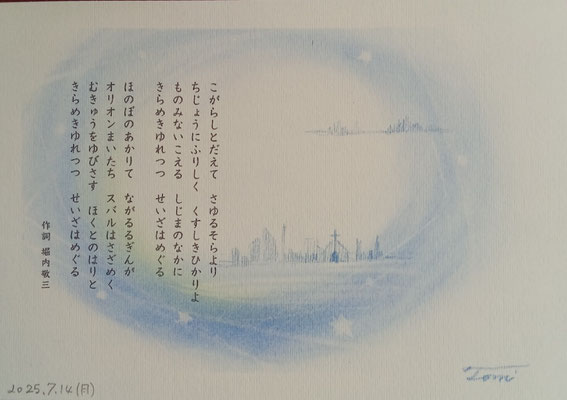 こがらしとだえて　さゆるそらより
ちじょうにふりしく　くすしきひかりよ
ものみないこえる　しじまのなかに
きらめきゆれつつ　せいざはめぐる
ほのぼのあかりて　ながるるぎんが
オリオンまいたち　スバルはさざめく
むきゅうをゆびさす　ほくとのはりと
きらめきゆれつつ　せいざはめぐる
作詞 堀内敬三
2025.7.14(月)
Tomi